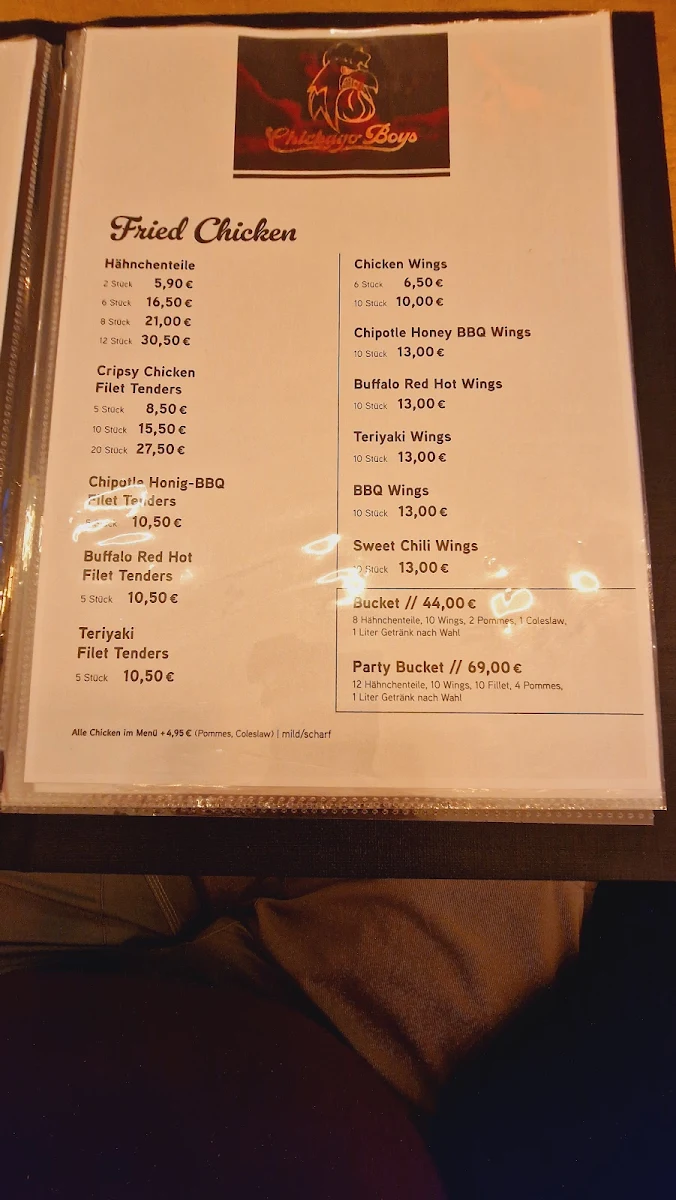 Chichago Boys
Fried Chicken
Hähnchenteile
2 Stück 5,90 €
6 Stück 16,50 €
8 Stück 21,00 €
12 Stück 30,50 €
Cripsy Chicken
Filet Tenders
5 Stück 8,50 €
10 Stück 15,50 €
20 Stück 27,50 €
Chipotle Honig-BBQ
Filet Tenders
5 Stück 10,50 €
Buffalo Red Hot
Filet Tenders
5 Stück 10,50 €
Teriyaki
Filet Tenders
5 Stück 10,50 €
Chicken Wings
6 Stück 6,50 €
10 Stück 10,00 €
Chipotle Honey BBQ Wings
10 Stück 13,00 €
Buffalo Red Hot Wings
10 Stück 13,00 €
Teriyaki Wings
10 Stück 13,00 €
BBQ Wings
10 Stück 13,00 €
Sweet Chili Wings
10 Stück 13,00 €
Bucket // 44,00 €
8 Hähnchenteile, 10 Wings, 2 Pommes, 1 Coleslaw,
1 Liter Getränk nach Wahl
Party Bucket // 69,00 €
12 Hähnchenteile, 10 Wings, 10 Fillet, 4 Pommes,
1 Liter Getränk nach Wahl
Alle Chicken im Menü +4,95 € (Pommes, Coleslaw) | mild/scharf